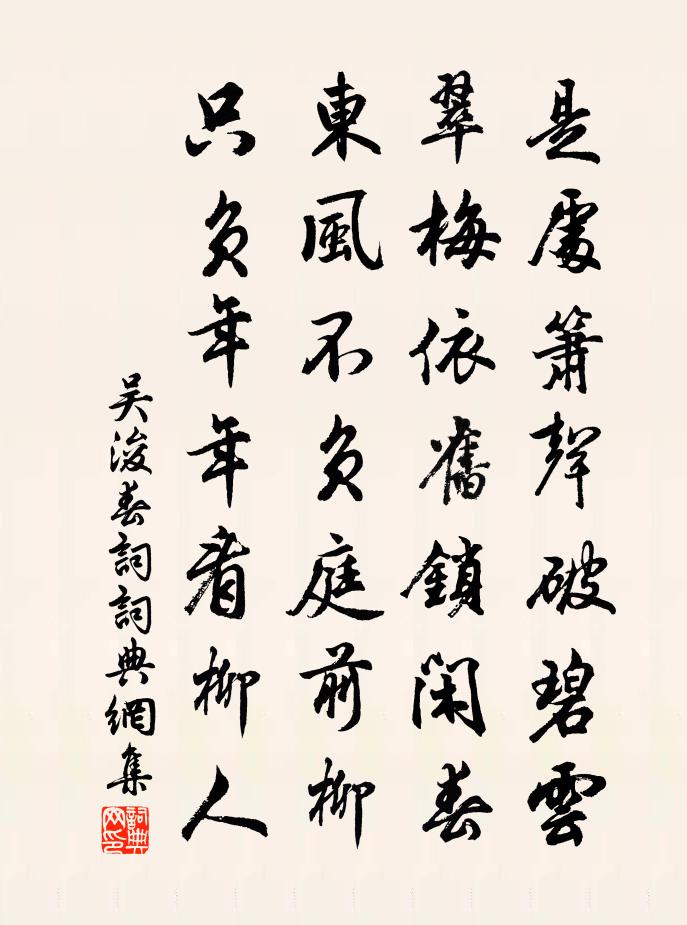 是處簫聲破碧雲
翠梅依舊鎖閑春
東風不負庭前柳
只負年年看柳人
吴浚春詞詞典網集
詞典
网印